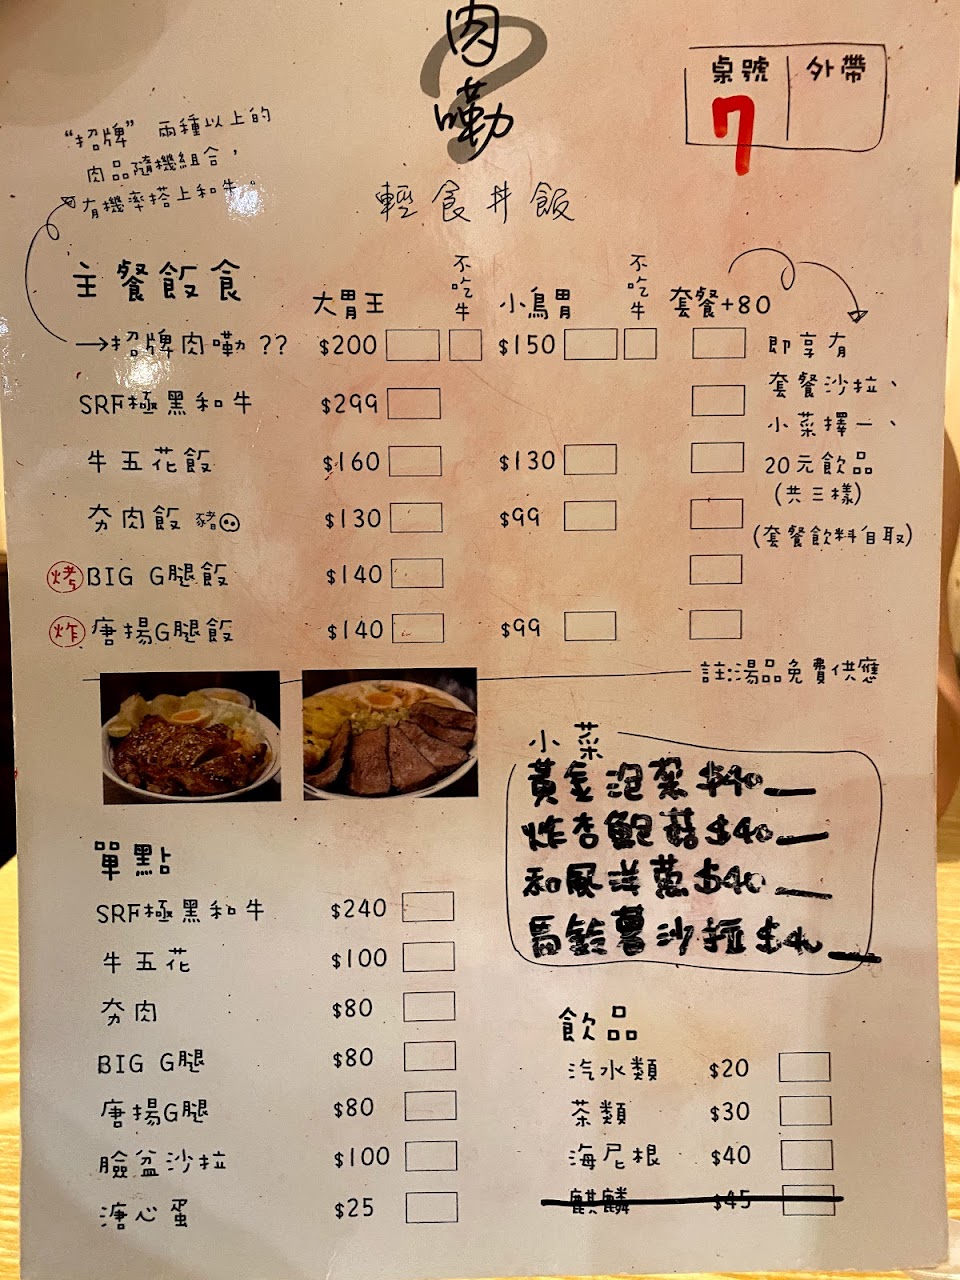 肉嘞
桌號 外帶
7
“招牌” 兩種以上的
肉品隨機組合，
有機率搭上和牛。
輕食丼飯
主餐飯食 大胃王 不吃牛 小鳥胃 不吃牛 套餐+80
→招牌肉嘞?? $200 $150
SRF極黑和牛 $299
牛五花飯 $160 $130
夯肉飯 豬 $130 $99
烤 BIG G腿飯 $140
炸 唐揚G腿飯 $140 $99
即享有
套餐沙拉、
小菜擇一、
20元飲品
(共三樣)
(套餐飲料自取)
註:湯品免費供應
小菜
黃金泡菜$40
炸杏鮑菇$40
和風洋蔥$40
馬鈴薯沙拉$40
單點
SRF極黑和牛 $240
牛五花 $100
夯肉 $80
BIG G腿 $80
唐揚G腿 $80
臉盆沙拉 $100
溏心蛋 $25
飲品
汽水類 $20
茶類 $30
海尼根 $40
麒麟 $45